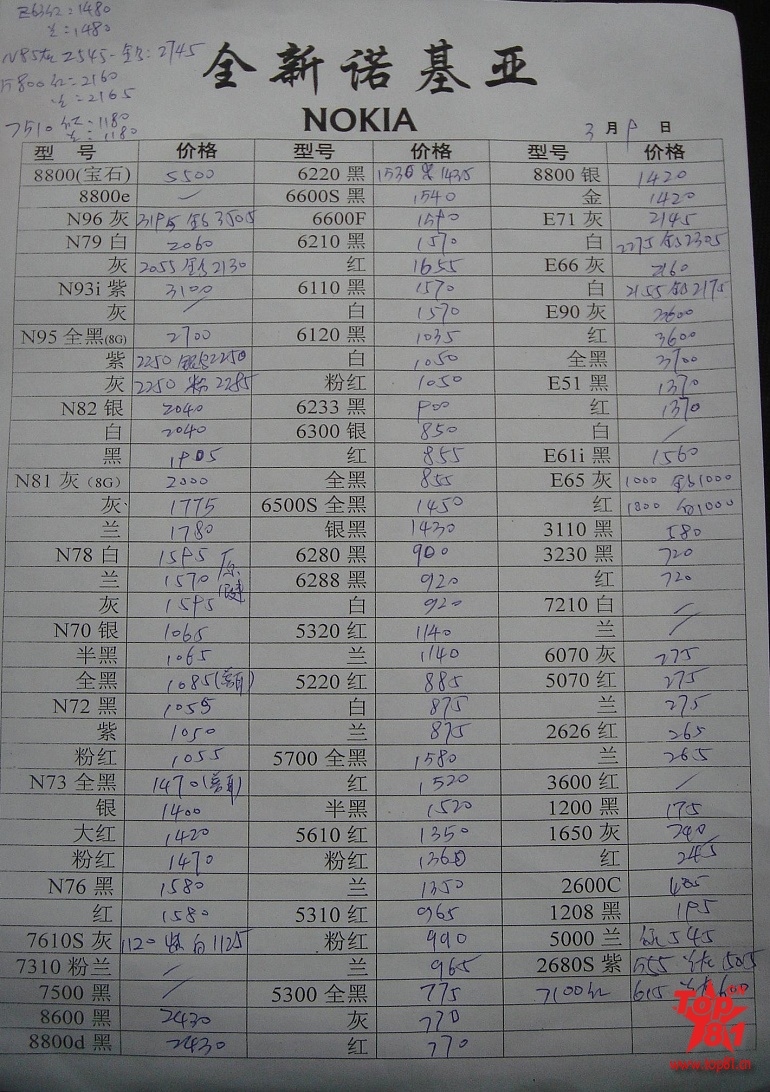 E63红:1480
兰:1480
N85灰 2545-金:2745
5800红=2160
兰=2165
7510红:1180
兰:1180
全新诺基亚
NOKIA
3月9日
型 号 价格 型号 价格 型号 价格
8800(宝石) 5500 6220 黑 1530 黑1435 8800 银 1420
8800e / 6600S 黑 1540 金 1420
N96 灰 3195 金3505 6600F 1590 E71 灰 2145
N79 白 2060 6210 黑 1570 白 2275 金2305
灰 2055 金2130 红 1655 E66 灰 2160
N93i 紫 3100 6110 黑 1570 白 2155 金2175
灰 / 白 1570 E90 灰 3600
N95 全黑(8G) 2700 6120 黑 1035 红 3600
紫 2250 银2250 白 1050 全黑 3700
灰 2250 粉2285 粉红 1050 E51 黑 1370
N82 银 2040 6233 黑 900 红 1370
白 2040 6300 银 850 白 /
黑 1905 红 855 E61i 黑 1560
N81 灰（8G） 2000 全黑 855 E65 灰 1000 1000
灰 1775 6500S 全黑 1450 红 1000 1000
兰 1780 银黑 1430 3110 黑 580
N78 白 1595 原 6280 黑 900 3230 黑 720
兰 1570 6288 黑 920 红 720
灰 1595 白 920 7210 白 /
N70 银 1065 5320 红 1140 兰 /
半黑 1065 兰 1140 6070 灰 275
全黑 1085 5220 红 885 5070 红 275
N72 黑 1055 白 875 兰 275
紫 1050 兰 875 2626 红 265
粉红 1055 5700 全黑 1580 兰 265
N73 全黑 1470 红 1520 3600 红 /
银 1400 半黑 1520 1200 黑 175
大红 1420 5610 红 1350 1650 灰 240
粉红 1470 粉红 1360 红 245
N76 黑 1580 兰 1350 2600C 485
红 1580 5310 红 965 1208 黑 195
7610S 灰 1120 白1125 粉红 990 5000 兰 红545
7310 粉兰 / 兰 965 2680S 紫 555 505
7500 黑 / 5300 全黑 775 7100红 615 600
8600 黑 2430 灰 770
8800d 黑 2430 红 770
Top81.cn
www.top81.cn